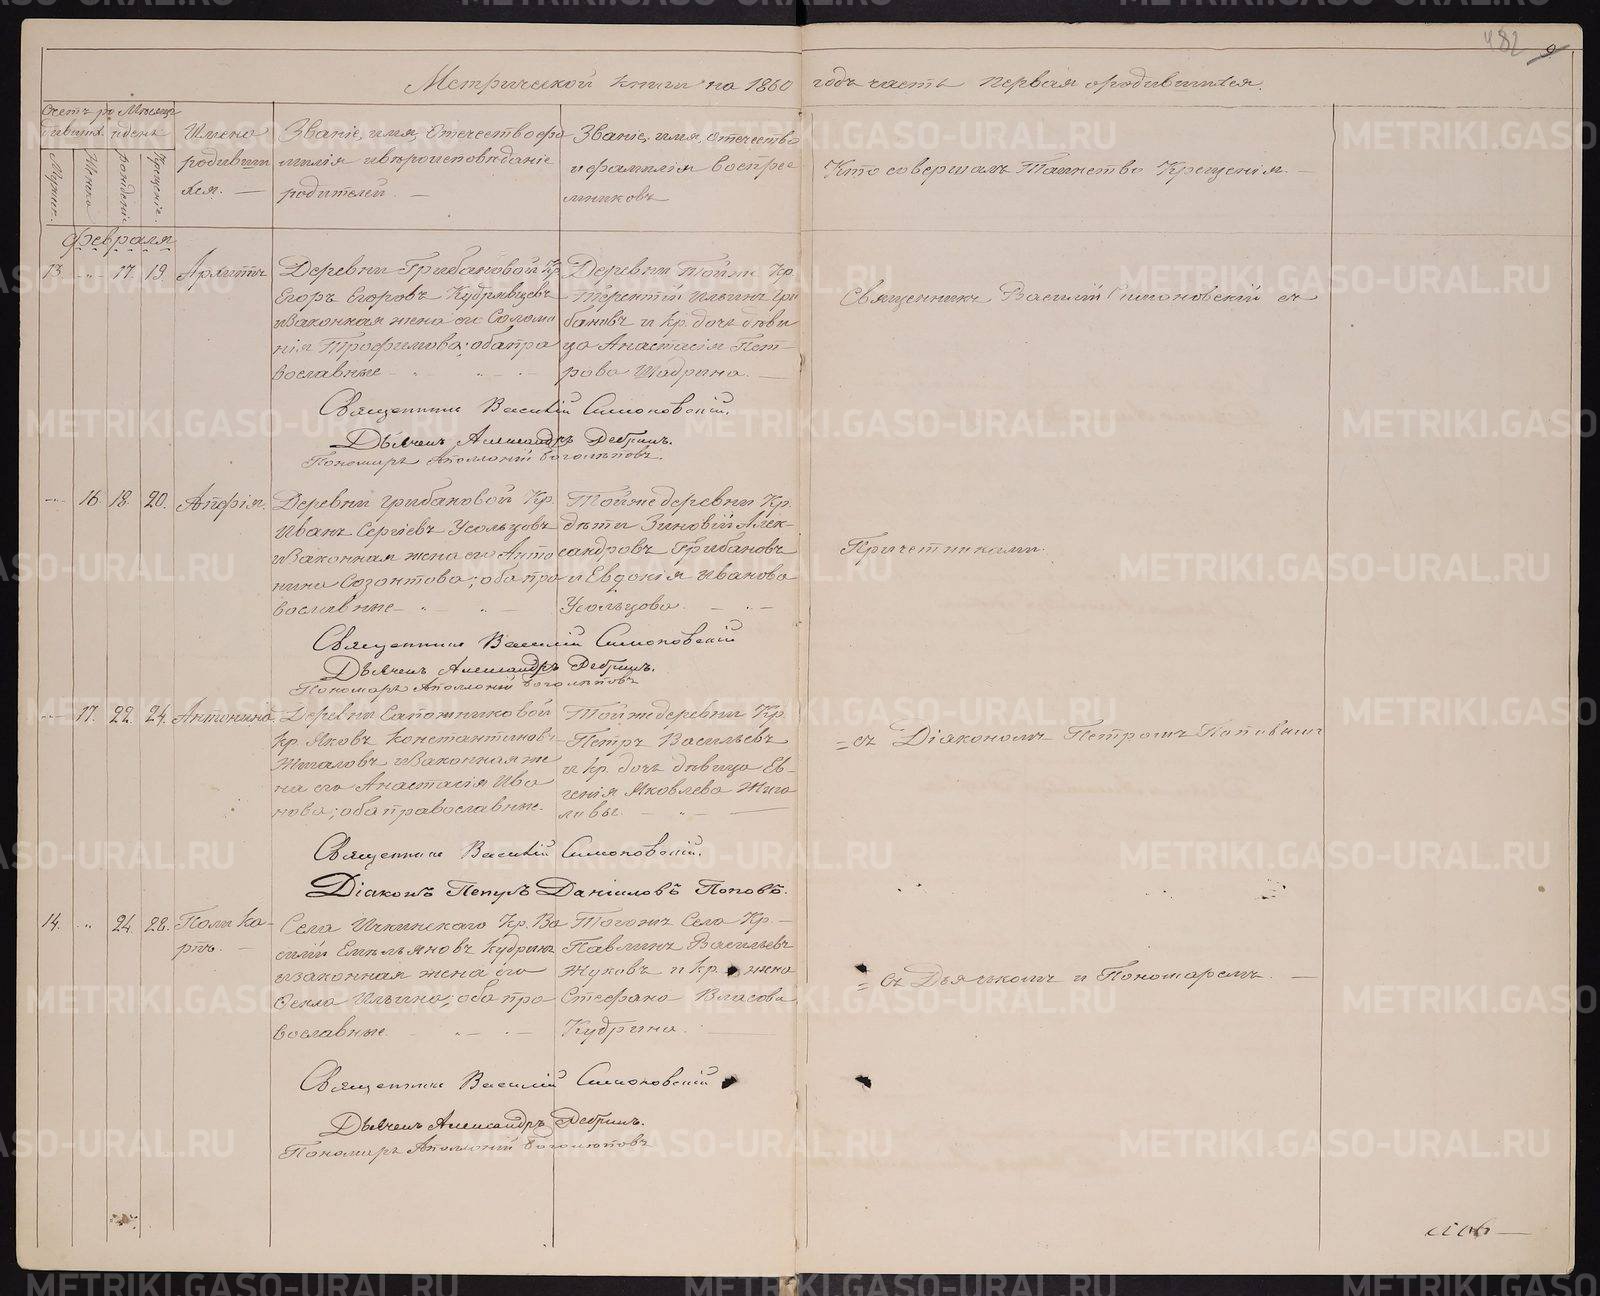 482
9
Метрической книги на 1860 годъ часть первая о родившихся.
Счетъ родившихся
Мѣсяцъ и день
Мужеск.
Женска
рожденіе
Крещеніе.
Имена родившихся. —
Званіе, имя, отечество фамилія и вѣроисповѣданіе родителей. —
Званіе, имя, отечество и фамилія воспреемниковъ
Кто совершалъ Таинство Крещенія. —
Февраля
13. „ 17. 19. Архиппъ
Деревни Грибановой Кр.
Егоръ Егоровъ Кудрявцевъ
и законная жена его Соломо
нія Трофимова; оба пра
вославные
Деревни Тойже Кр.
Терентій Ильинъ Гри
бановъ и Кр. дочь дѣви
ца Анастасія Пет-
рова Шадрина. —
Священникъ Василій Симоновскій съ
Священникъ Василій Симоновскій.
Дьячекъ Александръ Дебринъ.
Пономарь Аполлоній Боголѣповъ.
— 16. 18. 20. Апфія.
Деревни Грибановой Кр.
Иванъ Сергіевъ Усольцовъ
и законная жена его Анто
нина Созонтова; оба пра
вославные —
Тойже деревни Кр.
дѣти Зиновій Алек-
сандровъ Грибановъ
и Евдокія Иванова
Усольцова.
Причетниками.
Священникъ Василій Симоновскій
Дьячекъ Александръ Дебринъ.
Пономарь Аполлоній Боголѣповъ
— 17. 22. 24. Антонина.
Деревни Сапожниковой
Кр. Яковъ Константиновъ
Жигаловъ и законная же
на его Анастасія Ива
нова; оба православные.
Тойже деревни Кр.
Петръ Васильевъ
и Кр. дочь дѣвица Ев-
генія Яковлева Жига
ловы. —
= съ Діакономъ Петромъ Поповымъ
Священникъ Василій Симоновскій.
Діаконъ Петръ Даніиловъ Поповъ.
14. „ 24. 28. Поликарпъ. —
Села Ичкинскаго Кр. Ва
силій Емельяновъ Кудринъ
и законная жена его
Фекла Ильина; оба пра
вославные.
Тогожъ Села Кр. —
Павлинъ Васильевъ
Жуковъ и Кр. жена
Стефана Власова
Кудрина.
= съ Дьячькомъ и Пономаремъ. —
Священникъ Василій Симоновскій
Дьячекъ Александръ Дебринъ.
Пономарь Аполлоній Боголѣповъ
METRIKI.GASO-URAL.RU